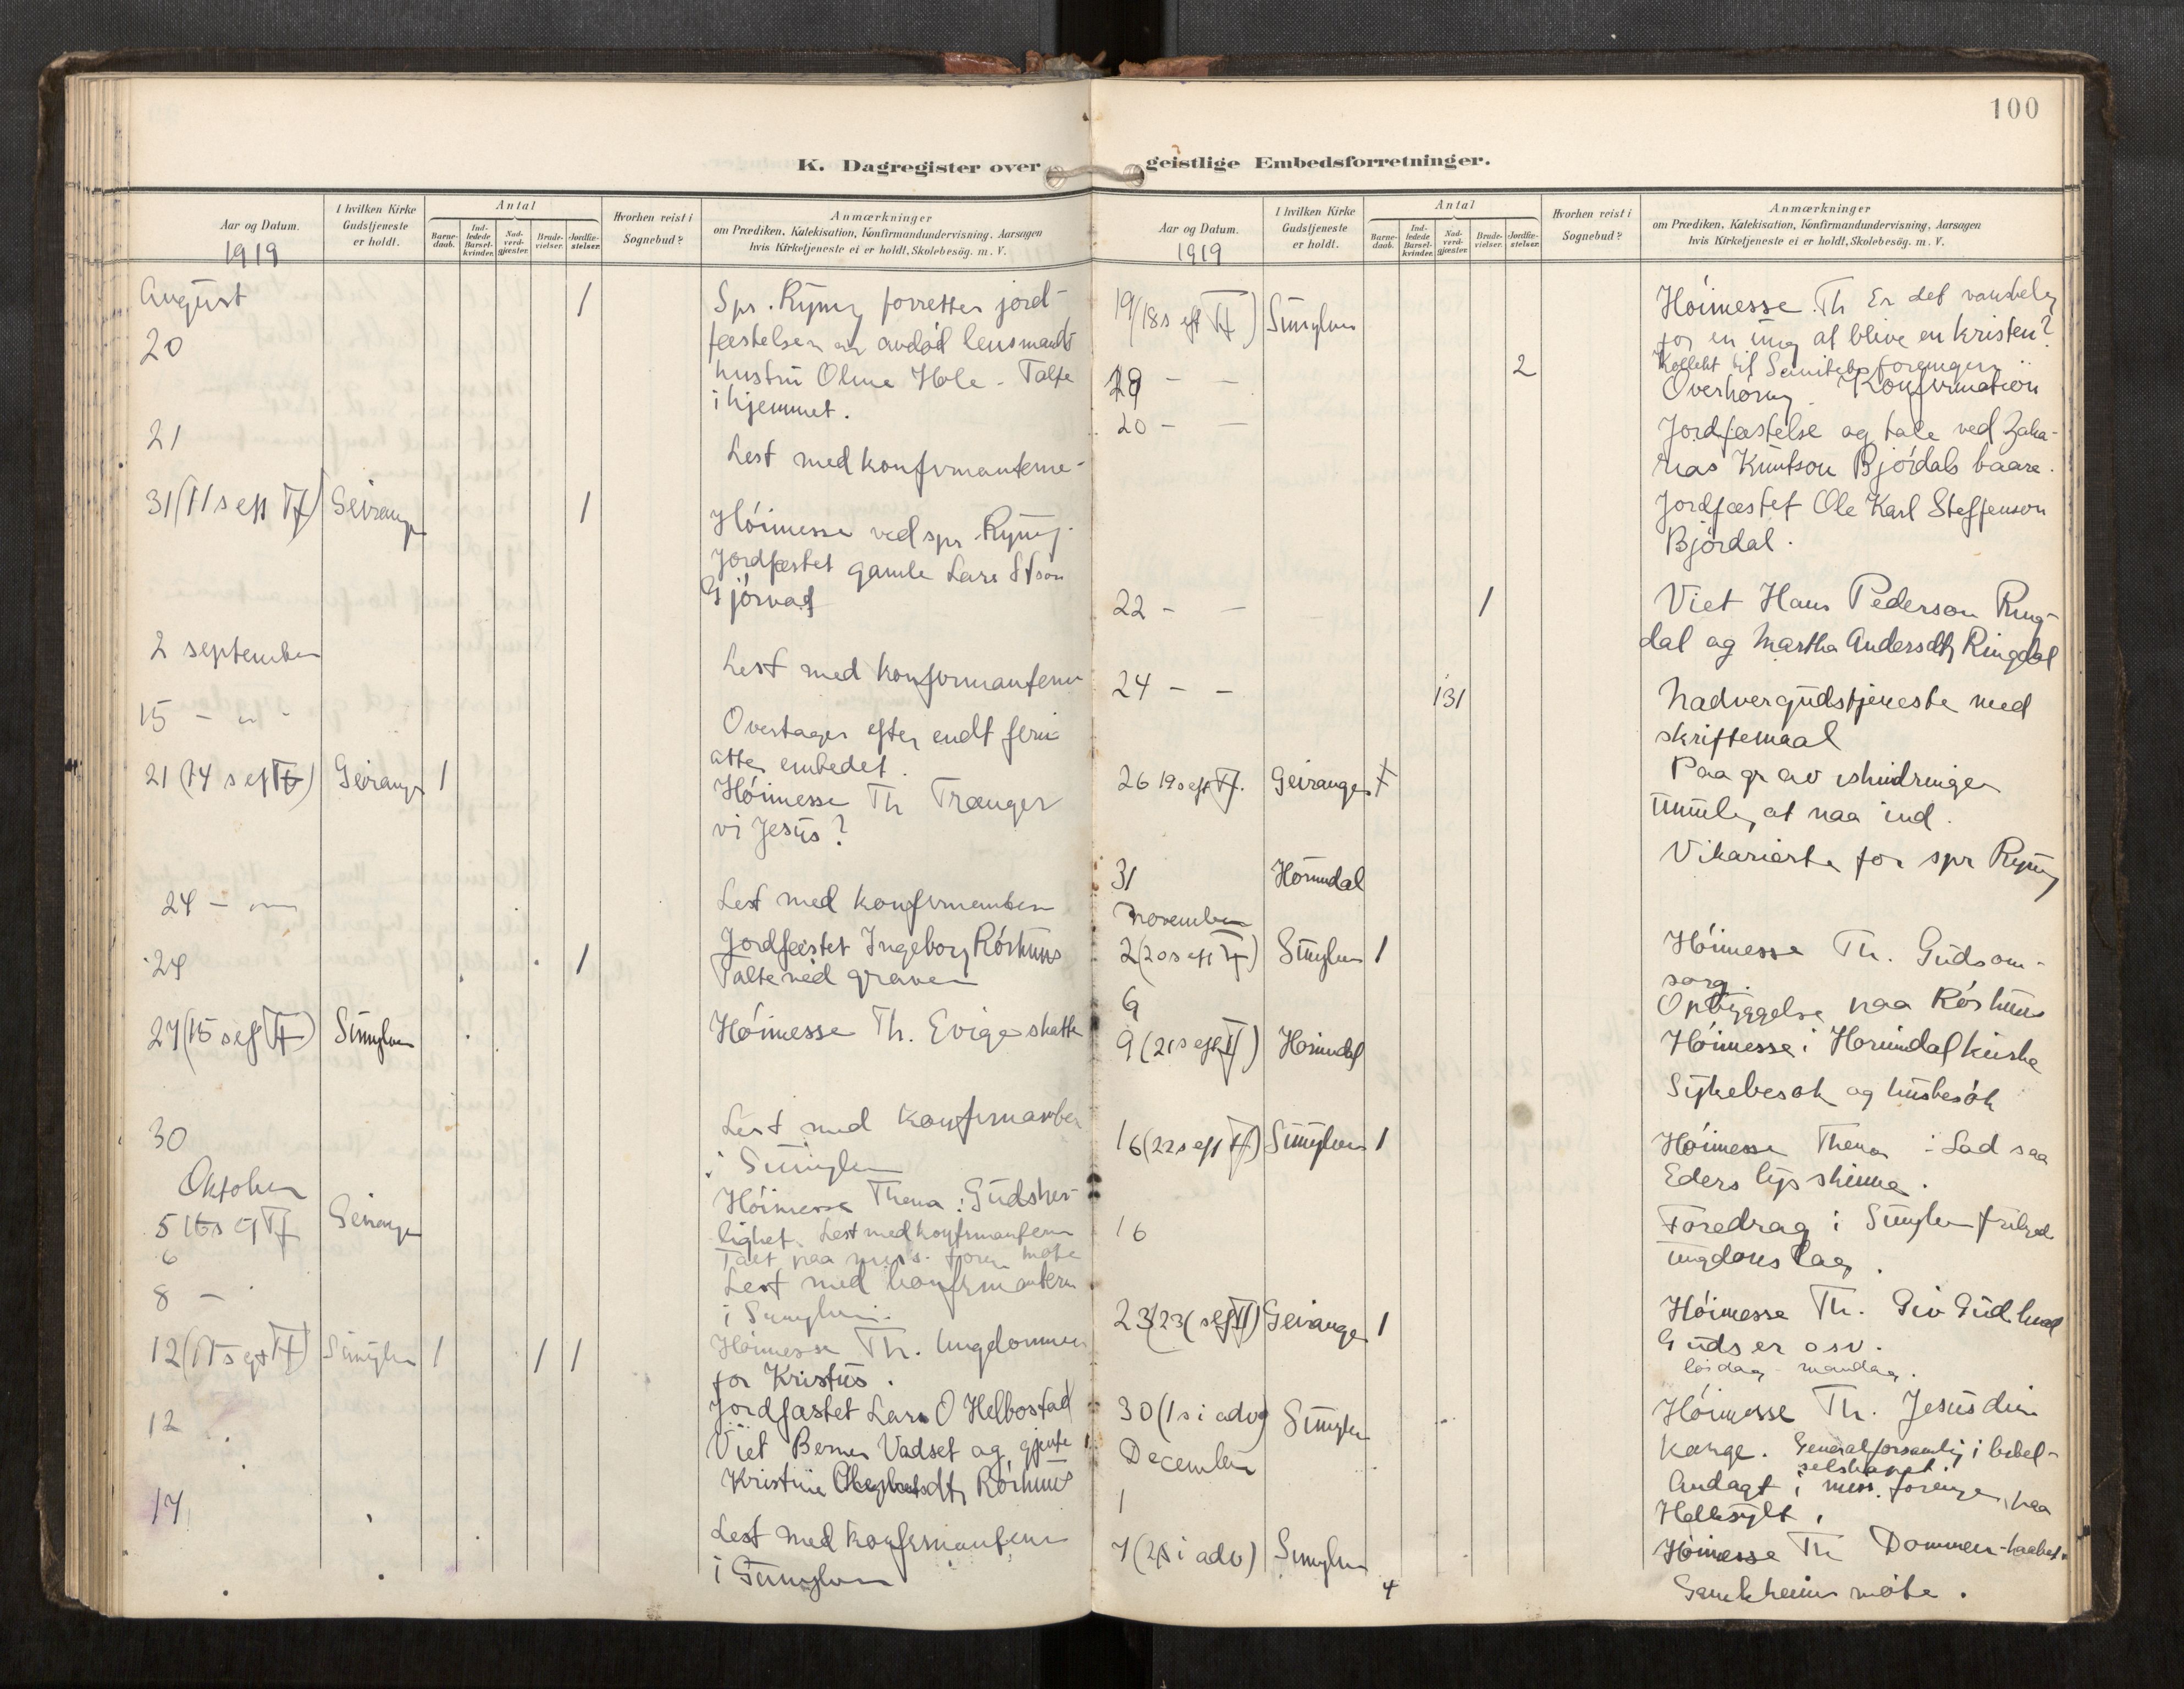 100
K. Dagregister over geistlige Embedsforretninger.
Aar og Datum.
1919
I hvilken Kirke
Gudstjeneste
er holdt.
Antal
Barne-
daab.
Ind-
ledede
Barsel-
kvinder.
Nad-
verd-
gjæster.
Brude-
vielser.
Jordfæ-
stelser.
Hvorhen reist i
Sognebud?
Anmærkninger
om Prædiken, Katekisation, Konfirmandundervisning, Aarsagen
hvis Kirketjeneste ei er holdt, Skolebesög. m. V.
August
20
1
Spr. Ryning forretter jord-
fæstelsen av avdød lensmands
hustru Oline Hole - Talte
i hjemmet.
21
Lest med konfirmanterne -
31 (11 s eft Tf) Geiranger 1
Höimesse ved spr. Ryning.
Jordfæstet gamle Lars
Gjörvad
2 september
Lest med konfirmanterne
15 - " -
Overtager efter endt ferie
atter embedet.
21 (14 s eft Tf) Geiranger 1
Höimesse Th Trænger
vi Jesus?
24 -
Lest med konfirmanten
24 1
Jordfæstet Ingeborg Röshuus
Talte ved graven
27 (15 s eft Tf) Sunylven
Höimesse Th. Evige skatte
30
Lest med konfirmanter
i Sunylven
Oktober
5 16 s eft Tf Geiranger
Höimesse Thema: Guds her-
lighet. Lest med konfirmanterne
6
Talt paa miss. foren møte
8 -
Lest med konfirmantern
i Sunylven.
12 (17 s eft Tf) Sunylven 1 1 1
Höimesse Th. Ungdommen
for Kristus.
12
Jordfæstet Lars O Helbostad
Viet Bernes Vadset og gjente
Kristine Röshuus
17
Lest med konfirmanterne
i Sunylven
Aar og Datum.
1919
I hvilken Kirke
Gudstjeneste
er holdt.
Antal
Barne-
daab.
Ind-
ledede
Barsel-
kvinder.
Nad-
verd-
gjæster.
Brude-
vielser.
Jordfæ-
stelser.
Hvorhen reist i
Sognebud?
Anmærkninger
om Prædiken, Katekisation, Konfirmandundervisning, Aarsagen
hvis Kirketjeneste ei er holdt, Skolebesög. m. V.
19 (18 s eft Tf) Sunylven
Höimesse. Th Er det vanskelig
for en ung at blive en kristen?
Kollekt til Sanitetsforeningen
19 - - 2
Overhøring. Konfirmation
20 - -
Jordfæstelse og tale ved Zaka-
rias Knutson Björdals baare.
Jordfæstet Ole Karl Steffenson
Björdal.
22 - - 1
Viet Hans Pederson Ring-
dal og Martha Andersdtr Ringdal
24 - - 131
Nadvergudstjeneste med
skriftemaal
26 19 s eft Tf. Geiranger †
Paa gr av ishindringer
umulig at naa ind.
31 Horundal
Vikarierte for spr Ryning
November
2 (20 s eft Tf) Sunylven 1
Höimesse Th. Guds om-
sorg.
6
Opbyggelse paa Röshuus
9 (21 s eft Tf) Horundal
Höimesse i Horundal kirke
Sykebesøk og husbesök
16 (22 s eft Tf) Sunylven 1
Höimesse Thema: Lad saa
Eders lys skinne.
16
Foredrag i Sunylven frilynd
ungdomslag.
23 (23 s eft Tf) Geiranger 1
Höimesse Th. Giv Gud hvad
Guds er osv.
lördag - mandag.
30 (1 s i adv) Sunylven
Höimesse Th. Jesus din
konge. Generalforsamling i bibel-
selskapet.
December
1
Andagt i miss. foreningen paa
Hellesylt.
7 (2 s i adv) Sunylven
Höimesse Th Dommen - haabet.
Samlheims møte.
4